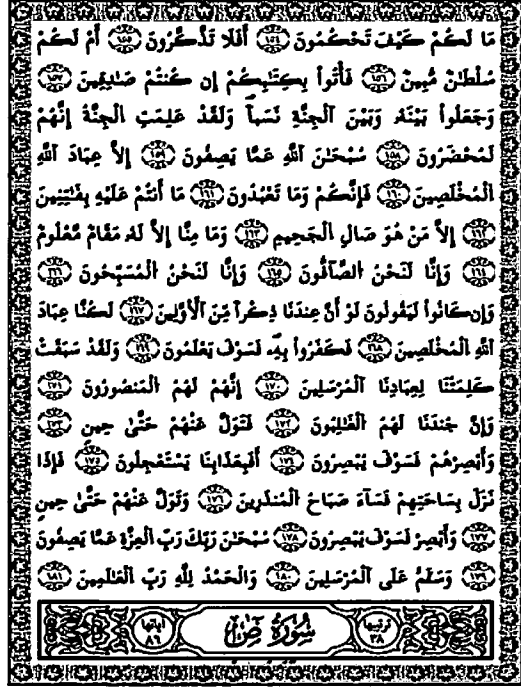 مَا لَكُمْ كَيْفَ تَحْكُمُونَ ١٥٤ أَفَلَا تَذَكَّرُونَ ١٥٥ أَمْ لَكُمْ
سُلْطَٰنٌ مُّبِينٌ ١٥٦ فَأْتُوا۟ بِكِتَٰبِكُمْ إِن كُنتُمْ صَٰدِقِينَ ١٥٧
وَجَعَلُوا۟ بَيْنَهُۥ وَبَيْنَ ٱلْجِنَّةِ نَسَباً وَلَقَدْ عَلِمَتِ ٱلْجِنَّةُ إِنَّهُمْ
لَمُحْضَرُونَ ١٥٨ سُبْحَٰنَ ٱللَّهِ عَمَّا يَصِفُونَ ١٥٩ إِلاَّ عِبَادَ ٱللَّهِ
ٱلْمُخْلَصِينَ ١٦٠ فَإِنَّكُمْ وَمَا تَعْبُدُونَ ١٦١ مَا أَنتُمْ عَلَيْهِ بِفَٰتِنِينَ
١٦٢ إِلاَّ مَنْ هُوَ صَالِ ٱلْجَحِيمِ ١٦٣ وَمَا مِنَّا إِلاَّ لَهُۥ مَقَامٌ مَّعْلُومٌ
١٦٤ وَإِنَّا لَنَحْنُ ٱلصَّآفُّونَ ١٦٥ وَإِنَّا لَنَحْنُ ٱلْمُسَبِّحُونَ ١٦٦
وَإِن كَانُوا۟ لَيَقُولُونَ ١٦٧ لَوْ أَنَّ عِندَنَا ذِكْراً مِّنَ ٱلْأَوَّلِينَ لَكُنَّا عِبَادَ
ٱللَّهِ ٱلْمُخْلَصِينَ ١٦٨ فَكَفَرُوا۟ بِهِۦ فَسَوْفَ يَعْلَمُونَ ١٦٩ وَلَقَدْ سَبَقَتْ
كَلِمَتُنَا لِعِبَادِنَا ٱلْمُرْسَلِينَ ١٧٠ إِنَّهُمْ لَهُمُ ٱلْمَنصُورُونَ ١٧١
وَإِنَّ جُندَنَا لَهُمُ ٱلْغَٰلِبُونَ ١٧٢ فَتَوَلَّ عَنْهُمْ حَتَّىٰ حِينٍ ١٧٣
وَأَبْصِرْهُمْ فَسَوْفَ يُبْصِرُونَ ١٧٤ أَفَبِعَذَابِنَا يَسْتَعْجِلُونَ ١٧٥ فَإِذَا
نَزَلَ بِسَاحَتِهِمْ فَسَآءَ صَبَاحُ ٱلْمُنذَرِينَ ١٧٦ وَتَوَلَّ عَنْهُمْ حَتَّىٰ حِينٍ
١٧٧ وَأَبْصِرْ فَسَوْفَ يُبْصِرُونَ ١٧٨ سُبْحَٰنَ رَبِّكَ رَبِّ ٱلْعِزَّةِ عَمَّا يَصِفُونَ
١٧٩ وَسَلَٰمٌ عَلَى ٱلْمُرْسَلِينَ ١٨٠ وَٱلْحَمْدُ لِلَّهِ رَبِّ ٱلْعَٰلَمِينَ ١٨١
ترتيبها ٣٨ سُورَةُ صٓ آياتها ٨٦